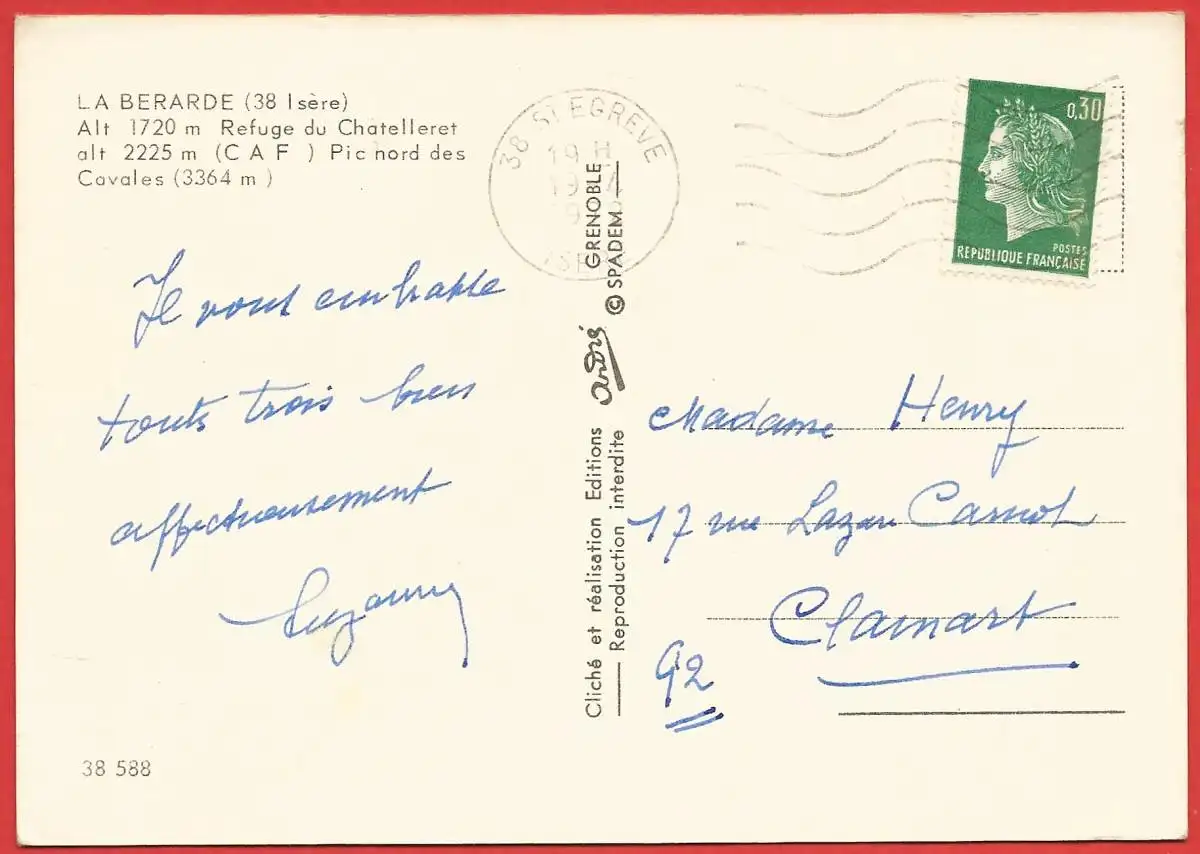 LA BERARDE (38 Isère)
Alt 1720 m Refuge du Chatelleret
alt 2225 m (C A F ) Pic nord des
Cavales (3364 m )
38 ST EGREVE
19 H
ISERE
0,30
POSTES
REPUBLIQUE FRANÇAISE
Je vous embrasse
touts trois bien
affectueusement
Suzanne
Cliché et réalisation Editions André GRENOBLE
Reproduction interdite © SPADEM
Madame Henry
17 rue Lazare Carnot
Clamart
92
38 588